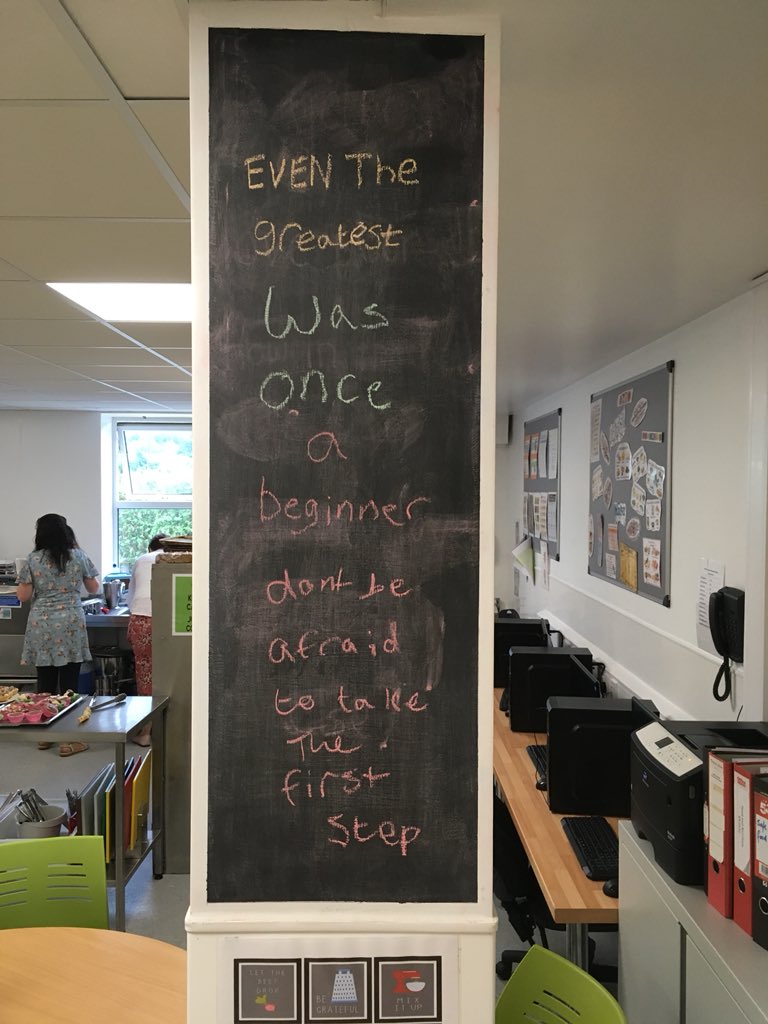 EVEN The
greatest
Was
once
a
beginner
dont be
afraid
to take
The
first
step
LET THE
BEET
DROP
BE
GRATEFUL
MIX
IT UP